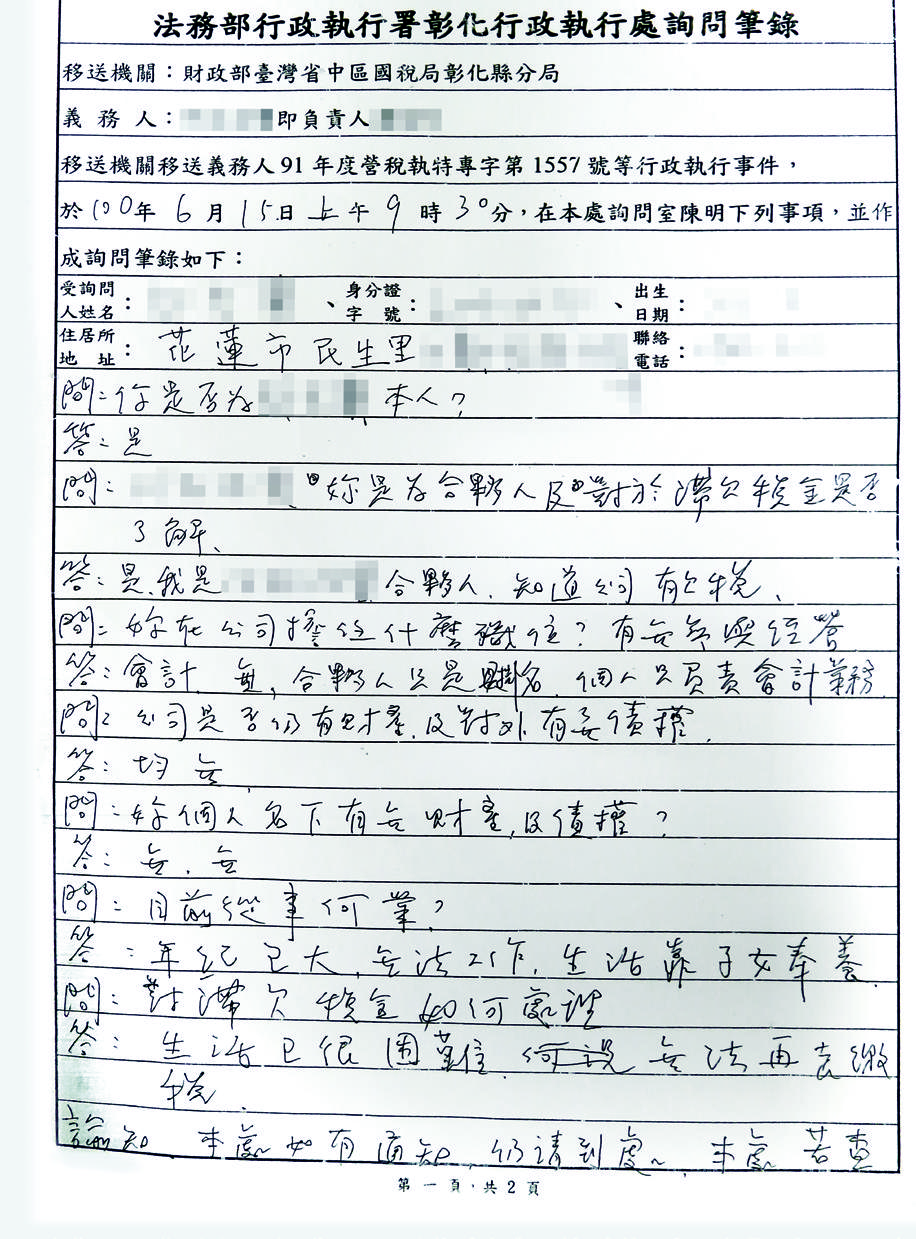 法務部行政執行署彰化行政執行處詢問筆錄
移送機關：財政部臺灣省中區國稅局彰化縣分局
義務人：即負責人
移送機關移送義務人91年度營稅執特專字第1557號等行政執行事件，
於100年6月15日上午9時30分，在本處詢問室陳明下列事項，並作
成詢問筆錄如下：
受詢問人姓名：、身分證字號：、出生日期：
住居所地址：花蓮市民生里 聯絡電話：
問：你是否為 本人？
答：是
問： 妳是為合夥人及對於滯欠稅金是否
了解、
答：是、我是 合夥人、知道公司有欠稅、
問：妳在公司擔任什麼職位？有無參與經營
答：會計、無，合夥人只是掛名、個人只負責會計業務
問：公司是否仍有財產、及對外有無債權、
答：均無
問：妳個人名下有無財產、及債權？
答：無、無
問：目前從事何業？
答：年紀已大、無法工作、生活靠子女奉養
問：對滯欠稅金如何處理
答：生活已很困難、無法再去繳
稅、
諭知、本處如有通知、仍請到處、本處若查
第一頁，共2頁